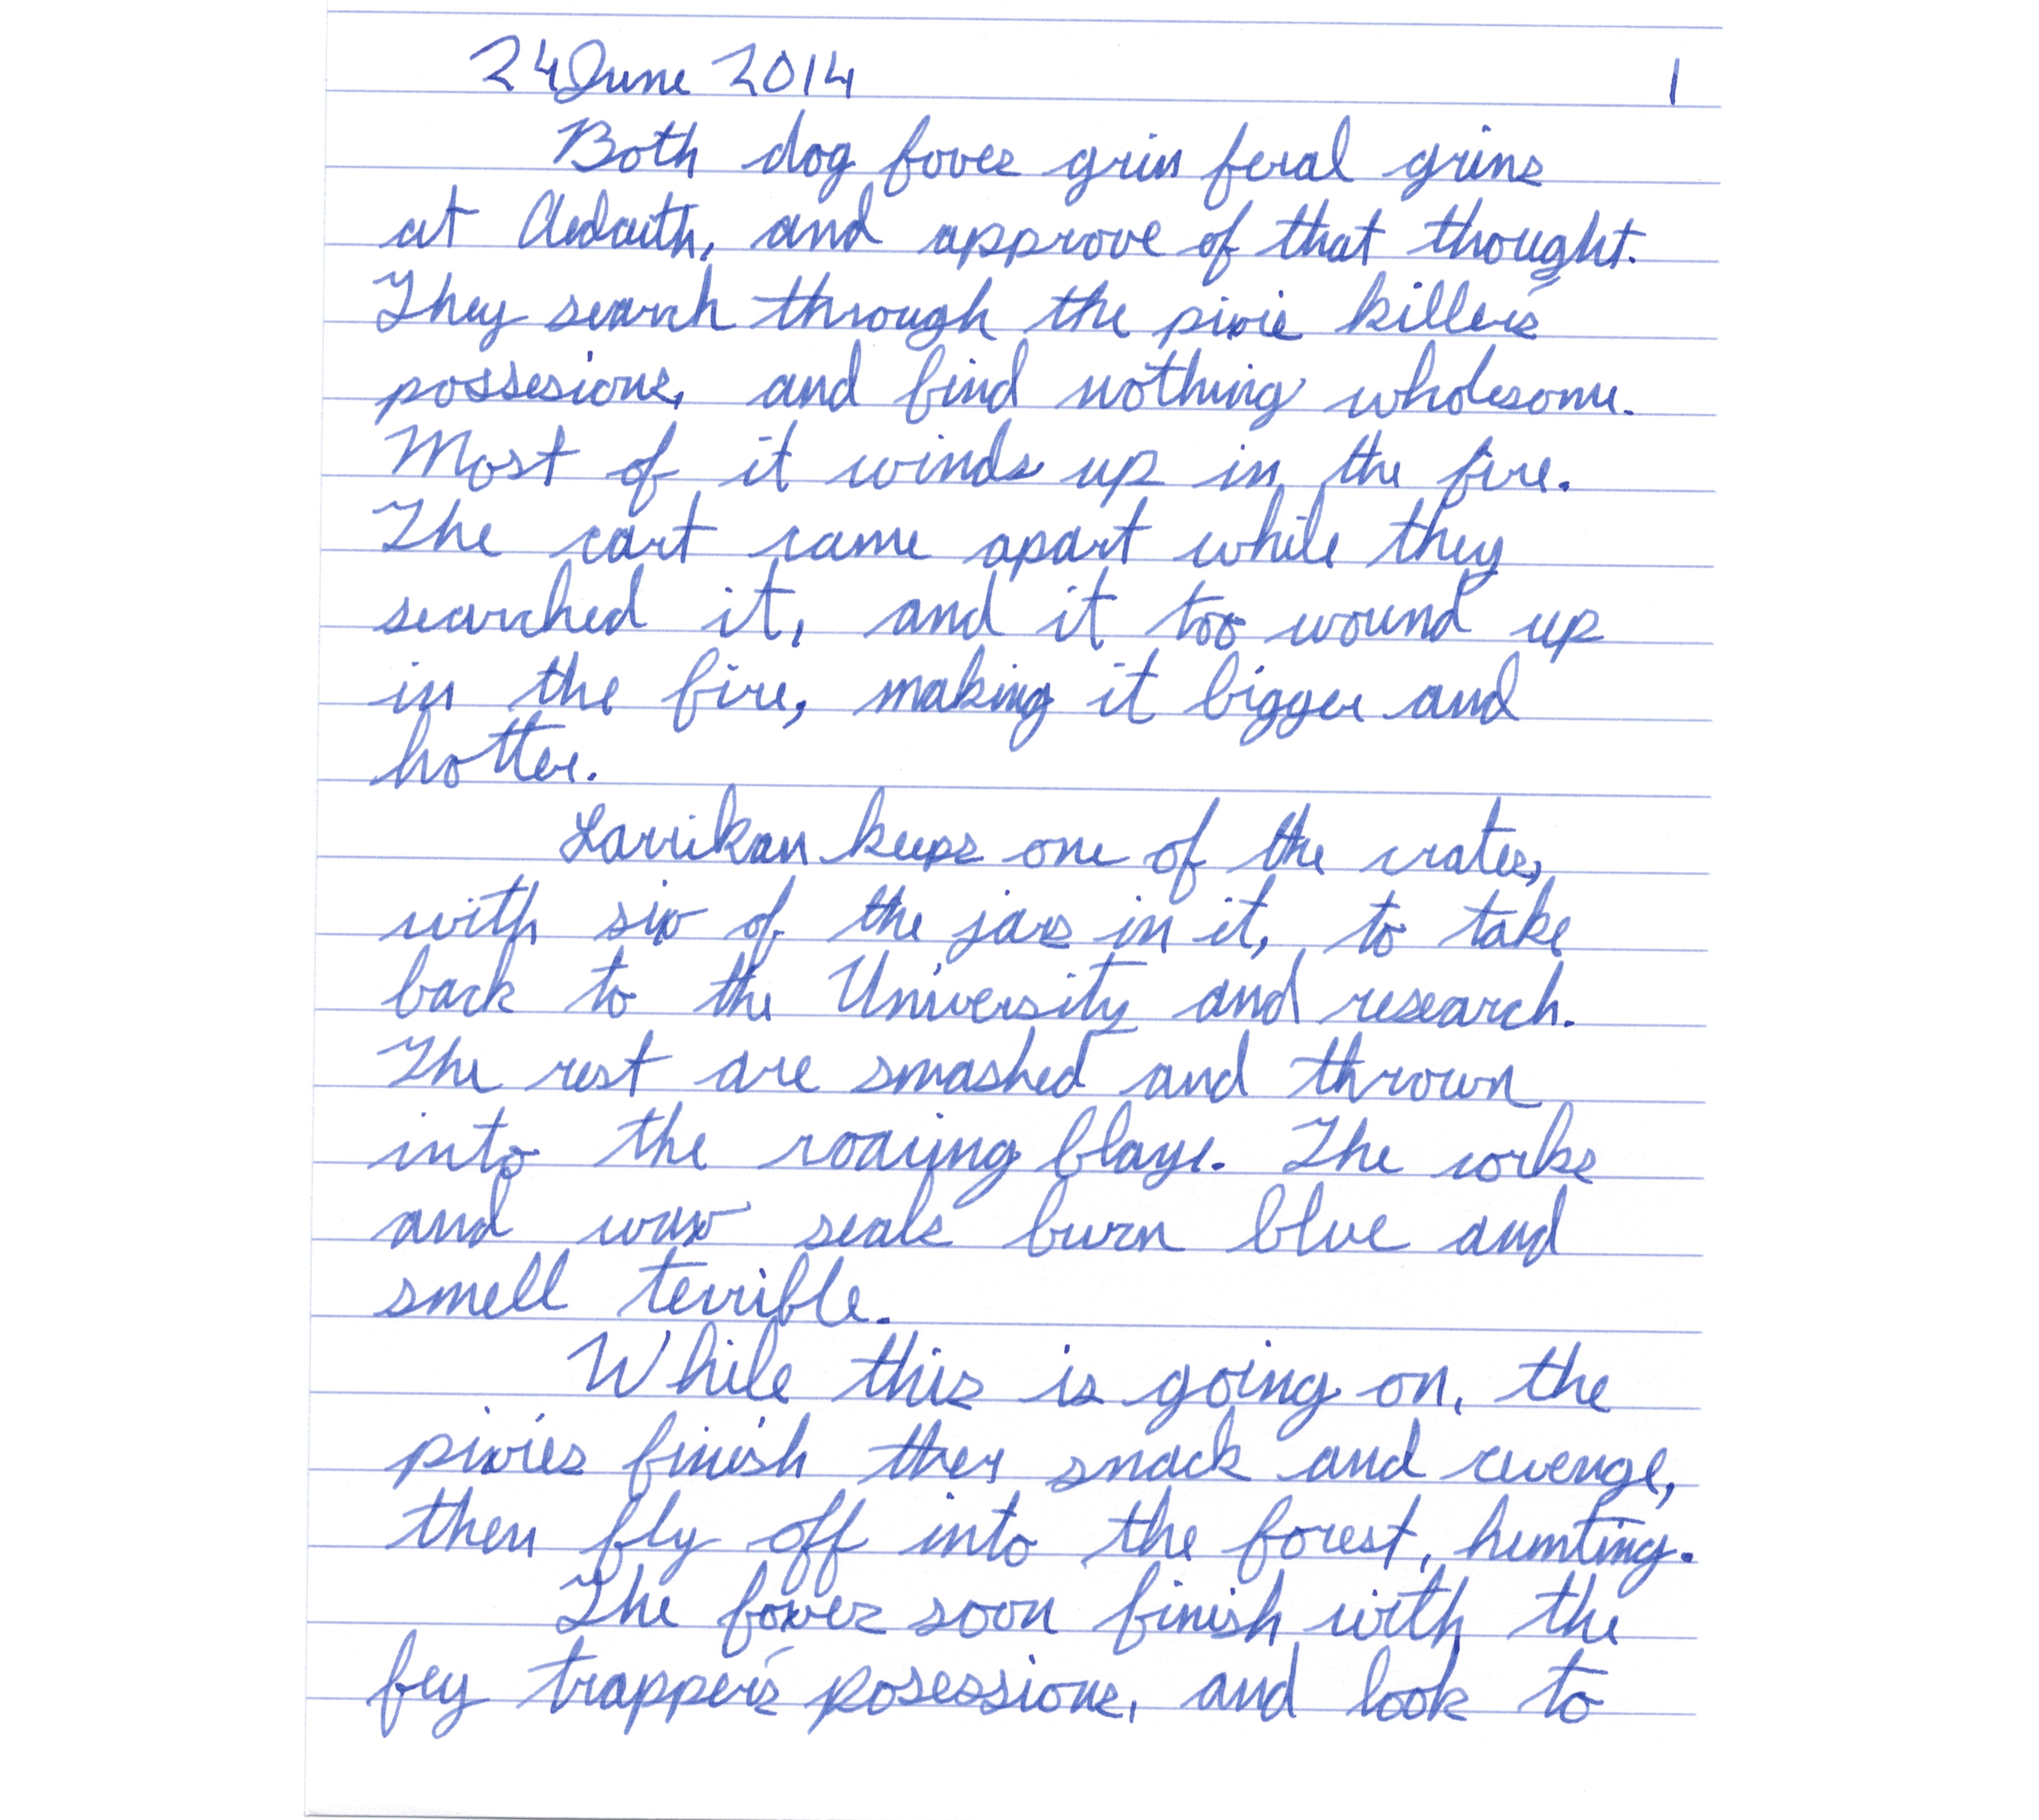 24 June 2014 1
Both dog foxes grin feral grins
at Aedaith, and approve of that thought.
They search through the pixie killer's
possesions, and find nothing wholesome.
Most of it winds up in the fire.
The cart came apart while they
searched it, and it too wound up
in the fire, making it bigger and
hotter.
Larrikan keeps one of the crates,
with six of the jars in it, to take
back to the University and research.
The rest are smashed and thrown
into the roaring blaze. The corks
and wax seals burn blue and
smell terrible.
While this is going on, the
pixies finish their snack and revenge,
then fly off into the forest, hunting.
The foxes soon finish with the
fey trapper's posessions, and look to